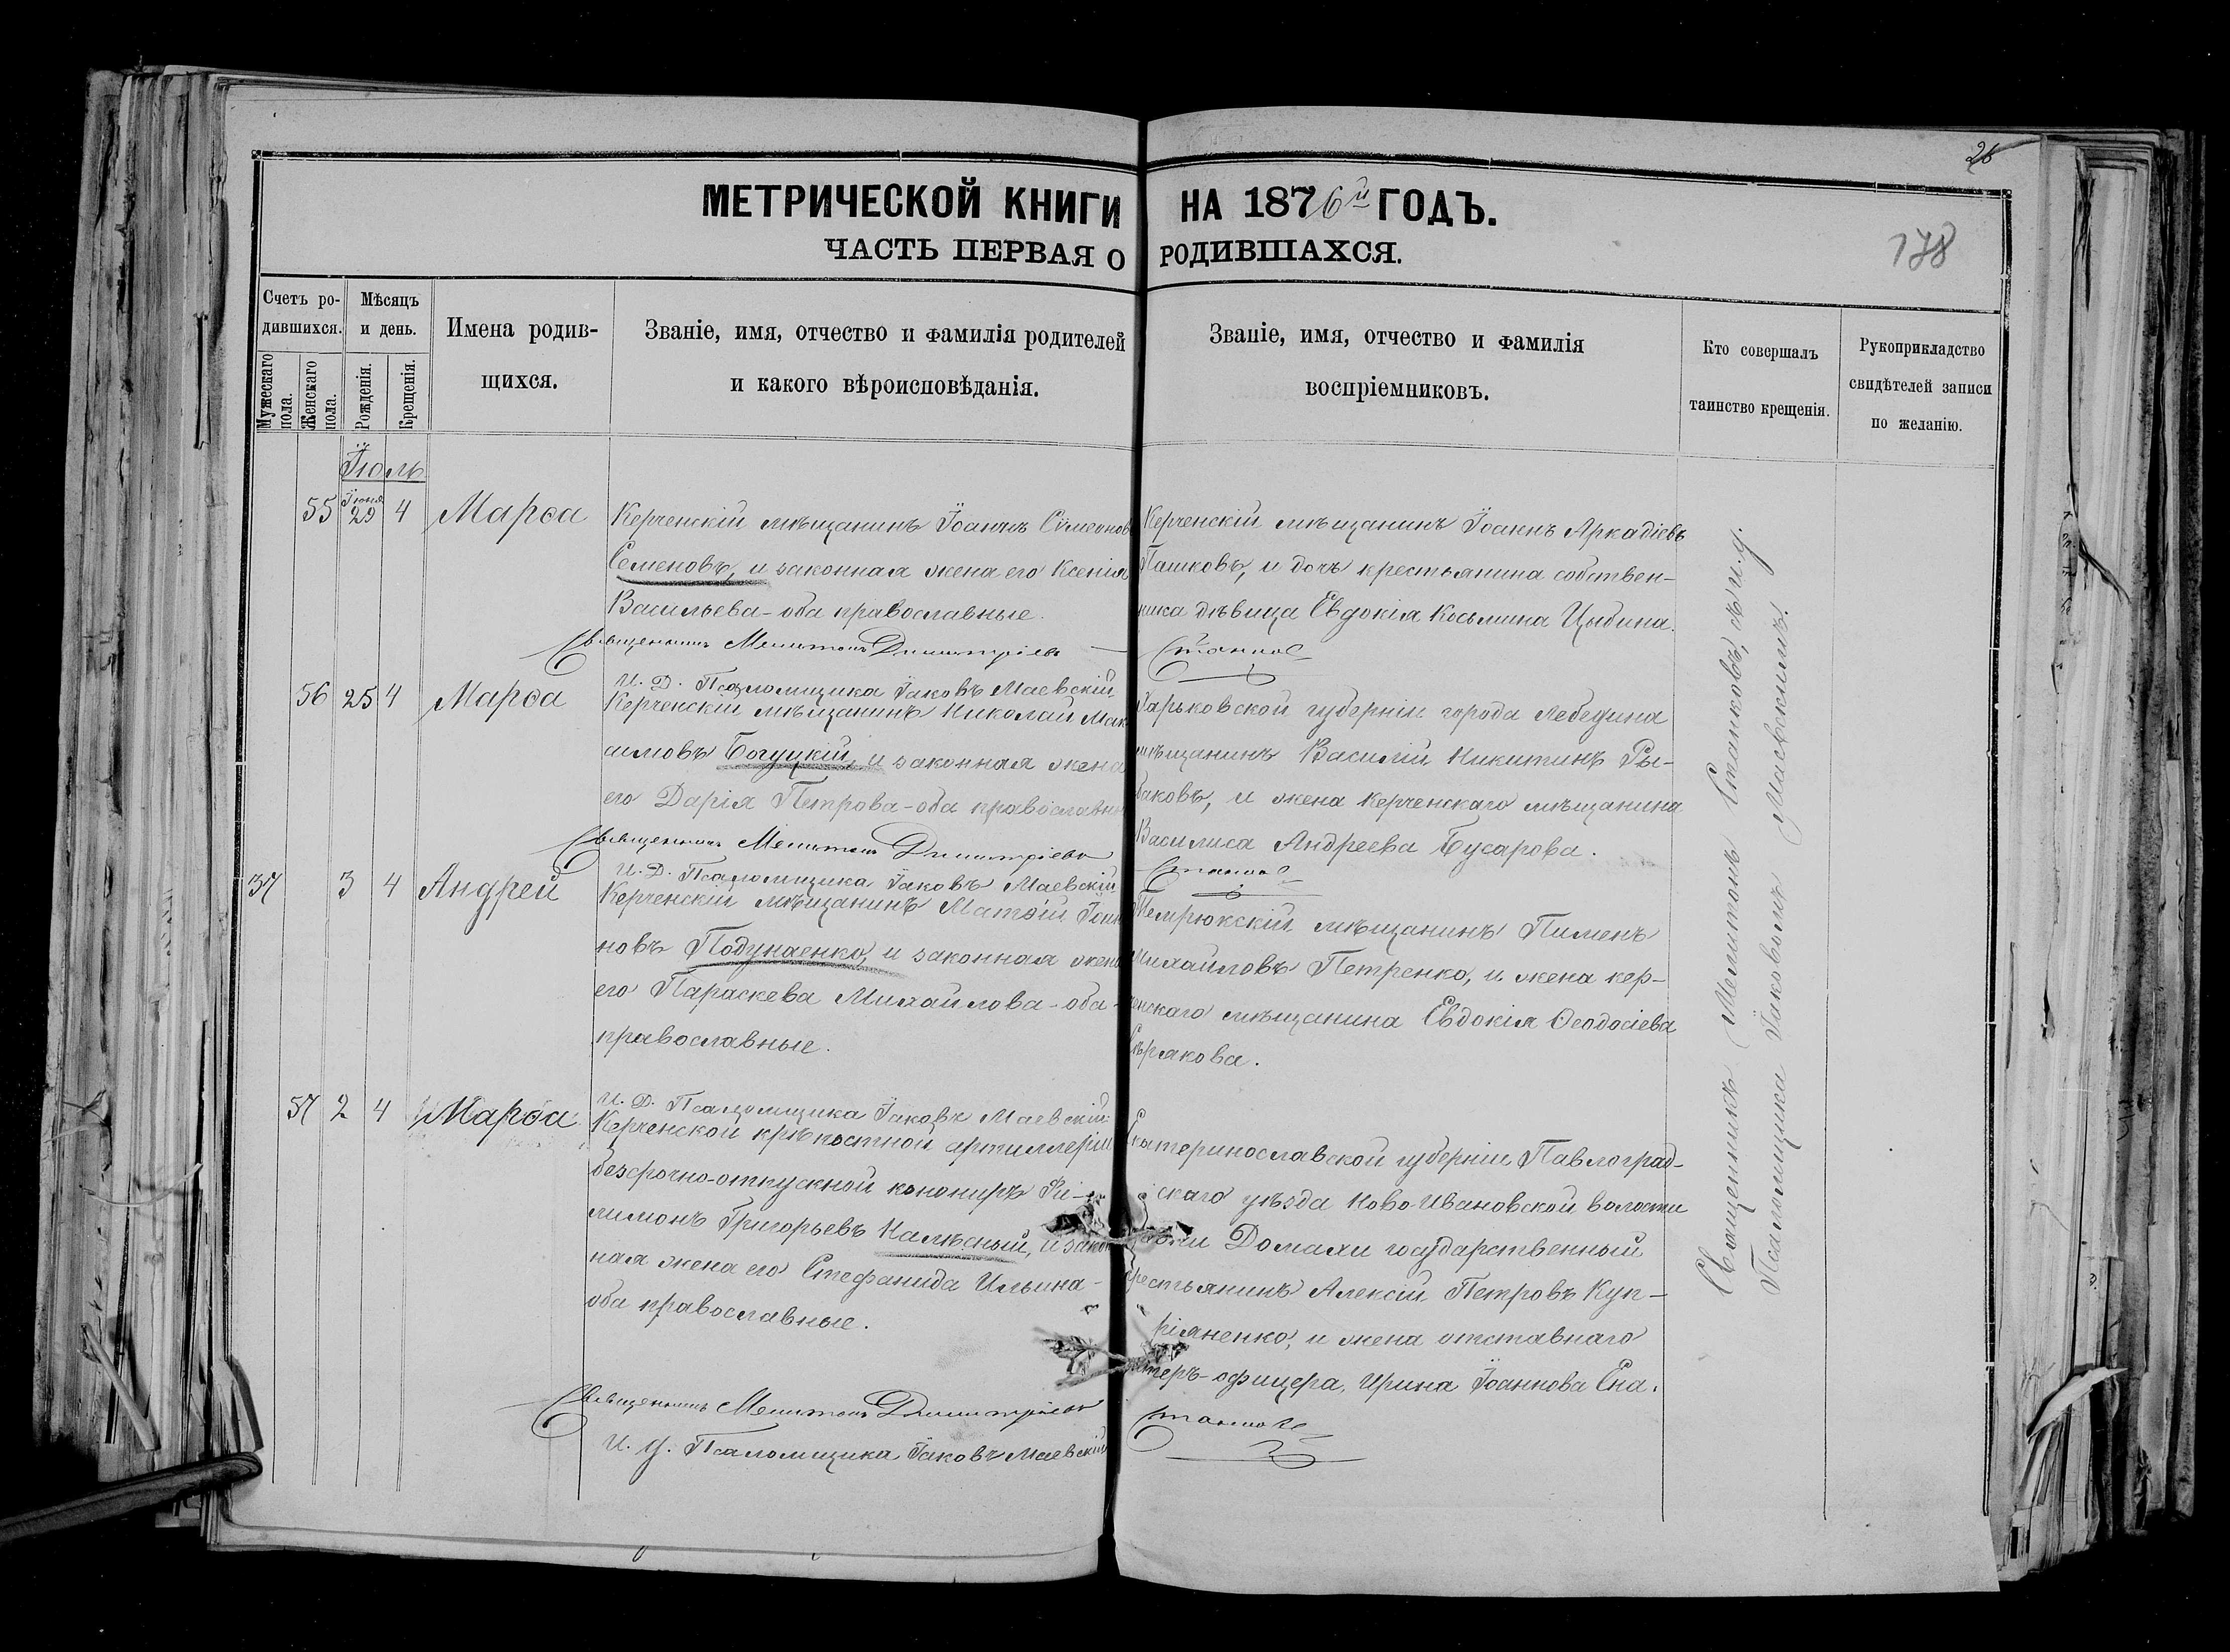 26
МЕТРИЧЕСКОЙ КНИГИ НА 1876й ГОДЪ.
ЧАСТЬ ПЕРВАЯ О РОДИВШАХСЯ.
178
Счетъ ро-
дившихся.
Мужескаго пола.
Женскаго пола.
Мѣсяцъ
и день.
Рожденія.
Крещенія.
Имена родив-
щихся.
Званіе, имя, отчество и фамилія родителей
и какого вѣроисповѣданія.
Званіе, имя, отчество и фамилія
воспріемниковъ.
Кто совершалъ
таинство крещенія.
Рукоприкладство
свидѣтелей записи
по желанію.
Іюль
55 Іюня 29 4 Марѳа
Керченскій мѣщанинъ Іоаннъ Сѵмеонов
Семеновъ, и законная жена его Ксенія
Васильева - оба православные.
Керченскій мѣщанинъ Іоаннъ Аркадіевъ
Пашковъ, и дочь крестьянина собствен-
ника дѣвица Евдокія Косьмина Цыбина.
Священникъ Мелитонъ Димитріевъ — Станковъ
И. Д. Псаломщика Іаковъ Маевскій
56 25 4 Марѳа
Керченскій мѣщанинъ Николай Мак
симовъ Богуцкій, и законная жена
его Дарія Петрова - оба православны
Харьковской губерніи города Лебедина
мѣщанинъ Василій Никитинъ Ры-
баковъ, и жена керченскаго мѣщанина
Василиса Андреева Бусарова.
Священникъ Мелитонъ Димитріевъ Станковъ
И. Д. Псаломщика Іаковъ Маевскій
37 3 4 Андрей
Керченскій мѣщанинъ Матѳій Іоан
новъ Подунаенко, и законная жена
его Параскева Михайлова - оба -
православные.
Темрюкскій мѣщанинъ Пименъ
Михайловъ Петренко, и жена кер-
ченскаго мѣщанина Евдокія Ѳеодосіева
И. Д. Псаломщика Іаковъ Маевскій
57 2 4 Марѳа
Керченской крѣпостной артиллеріи
безсрочно-отпускной канониръ Фи-
лимонъ Григорьевъ Калѣсный, и закон
ная жена его Стефанида Ильина -
оба православные.
Екатеринославской губерніи Павлоград-
скаго уѣзда Ново-Ивановской волости
Домахи государственный
крестьянинъ Алексій Петровъ Куп-
ріяненко, и жена отставнаго
унтеръ-офицера, Ирина Іоаннова Ена.
Священникъ Мелитонъ Димитріевъ Станковъ
И. Д. Псаломщика Іаковъ Маевскій
Священникъ Мелитонъ Станковъ, съ и. д.
Псаломщика Іаковомъ Маевскимъ.